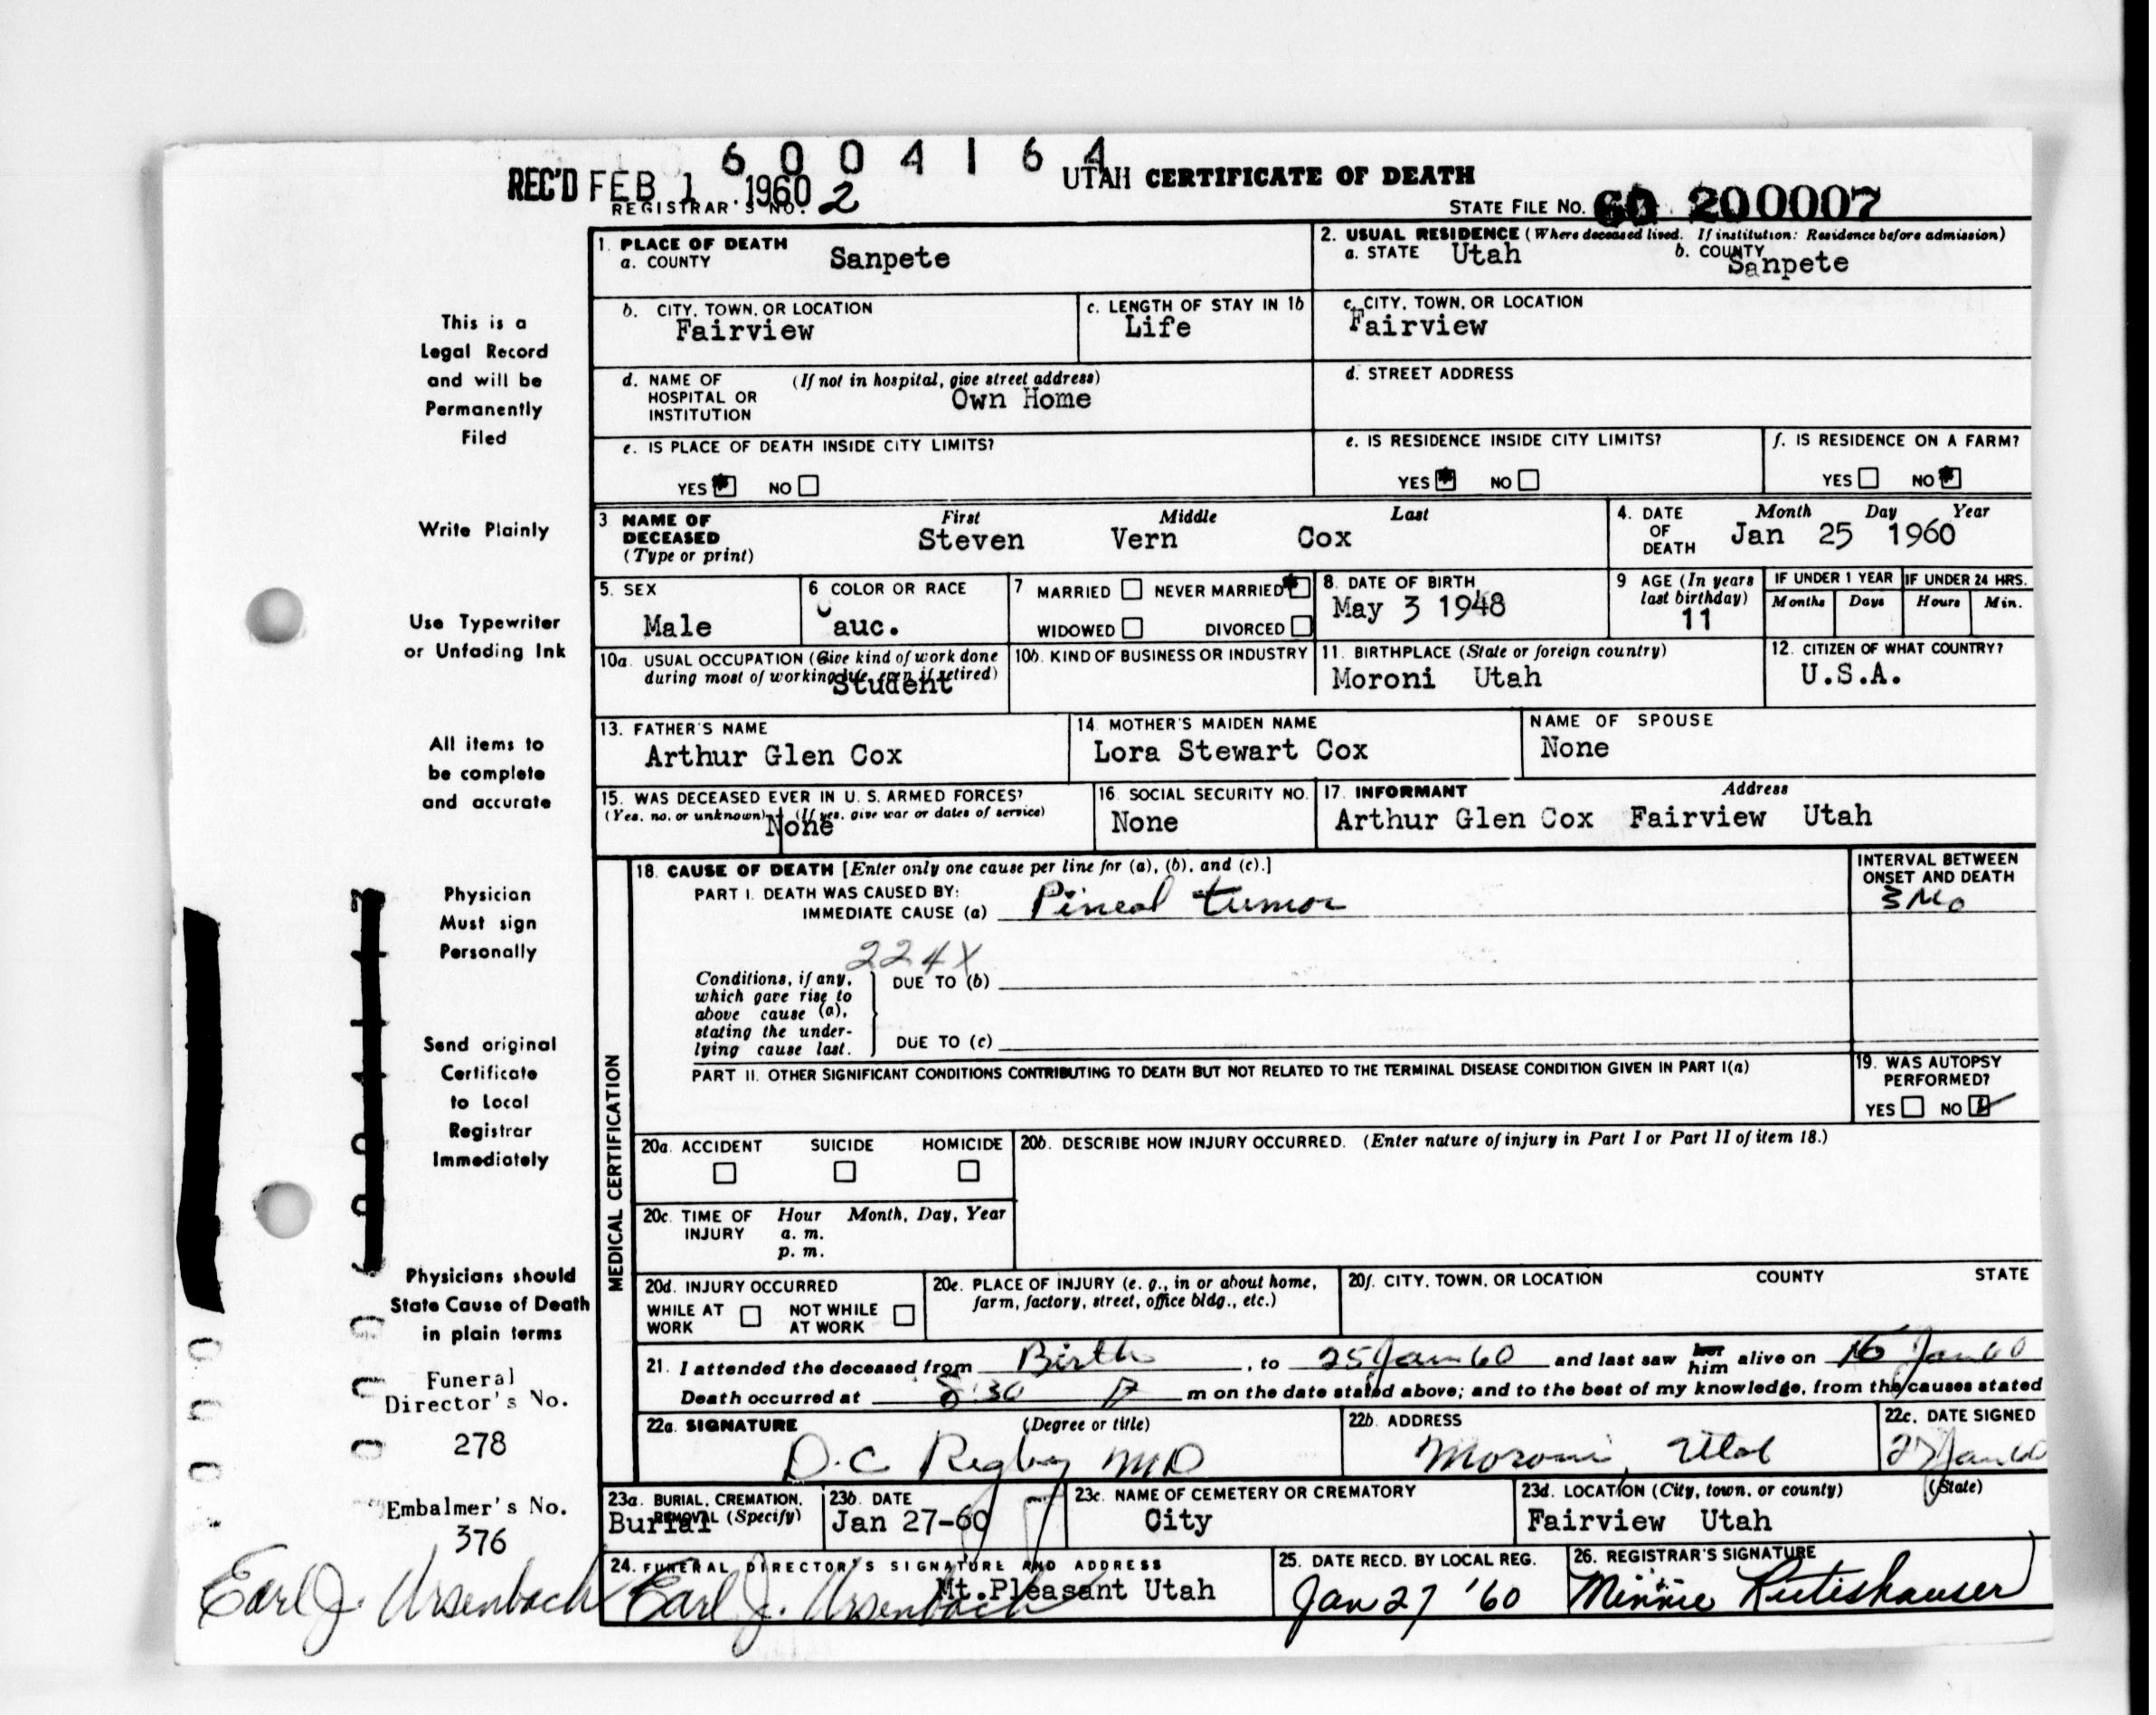 6004164
REC'D FEB 1 1960
REGISTRAR'S NO. 2
UTAH CERTIFICATE OF DEATH
STATE FILE No. 60 200007
1. PLACE OF DEATH
a. COUNTY Sanpete
2. USUAL RESIDENCE (Where deceased lived. If institution: Residence before admission)
a. STATE Utah b. COUNTY Sanpete
b. CITY, TOWN, OR LOCATION
Fairview
c. LENGTH OF STAY IN 1b
Life
c. CITY, TOWN, OR LOCATION
Fairview
d. NAME OF HOSPITAL OR INSTITUTION (If not in hospital, give street address)
Own Home
d. STREET ADDRESS
e. IS PLACE OF DEATH INSIDE CITY LIMITS?
YES NO
e. IS RESIDENCE INSIDE CITY LIMITS?
YES NO
f. IS RESIDENCE ON A FARM?
YES NO
3 NAME OF DECEASED (Type or print)
First Middle Last
Steven Vern Cox
4. DATE OF DEATH
Month Day Year
Jan 25 1960
5. SEX
Male
6 COLOR OR RACE
Cauc.
7 MARRIED NEVER MARRIED
WIDOWED DIVORCED
8. DATE OF BIRTH
May 3 1948
9 AGE (In years last birthday)
11
IF UNDER 1 YEAR
Months Days
IF UNDER 24 HRS.
Hours Min.
10a. USUAL OCCUPATION (Give kind of work done during most of working life, even if retired)
Student
10b. KIND OF BUSINESS OR INDUSTRY
11. BIRTHPLACE (State or foreign country)
Moroni Utah
12. CITIZEN OF WHAT COUNTRY?
U.S.A.
13. FATHER'S NAME
Arthur Glen Cox
14. MOTHER'S MAIDEN NAME
Lora Stewart Cox
NAME OF SPOUSE
None
15. WAS DECEASED EVER IN U. S. ARMED FORCES?
(Yes, no, or unknown) (If yes, give war or dates of service)
None
16. SOCIAL SECURITY NO.
None
17. INFORMANT Address
Arthur Glen Cox Fairview Utah
MEDICAL CERTIFICATION
18. CAUSE OF DEATH [Enter only one cause per line for (a), (b), and (c).]
PART I. DEATH WAS CAUSED BY:
IMMEDIATE CAUSE (a) Pineal tumor
INTERVAL BETWEEN ONSET AND DEATH
3 Mo
224X
Conditions, if any, which gave rise to above cause (a), stating the underlying cause last.
DUE TO (b)
DUE TO (c)
PART II. OTHER SIGNIFICANT CONDITIONS CONTRIBUTING TO DEATH BUT NOT RELATED TO THE TERMINAL DISEASE CONDITION GIVEN IN PART I(a)
19. WAS AUTOPSY PERFORMED?
YES NO
20a. ACCIDENT SUICIDE HOMICIDE
20b. DESCRIBE HOW INJURY OCCURRED. (Enter nature of injury in Part I or Part II of item 18.)
20c. TIME OF INJURY Hour Month, Day, Year
a. m.
p. m.
20d. INJURY OCCURRED
WHILE AT WORK NOT WHILE AT WORK
20e. PLACE OF INJURY (e. g., in or about home, farm, factory, street, office bldg., etc.)
20f. CITY, TOWN, OR LOCATION COUNTY STATE
21. I attended the deceased from Birth, to 25 Jan 60 and last saw her him alive on 16 Jan 60
Death occurred at 8:30 P m on the date stated above; and to the best of my knowledge, from the causes stated
22a. SIGNATURE (Degree or title)
D.C Rigby MD
22b. ADDRESS
Moroni, Utah
22c. DATE SIGNED
27 Jan 60
23a. BURIAL, CREMATION, REMOVAL (Specify)
Burial
23b. DATE
Jan 27-60
23c. NAME OF CEMETERY OR CREMATORY
City
23d. LOCATION (City, town, or county) (State)
Fairview Utah
24. FUNERAL DIRECTOR'S SIGNATURE AND ADDRESS
Earl J. Ursenbach Mt. Pleasant Utah
25. DATE RECD. BY LOCAL REG.
Jan 27 '60
26. REGISTRAR'S SIGNATURE
Minnie Rutishauser
This is a
Legal Record
and will be
Permanently
Filed
Write Plainly
Use Typewriter
or Unfading Ink
All items to
be complete
and accurate
Physician
Must sign
Personally
Send original
Certificate
to Local
Registrar
Immediately
Physicians should
State Cause of Death
in plain terms
Funeral
Director's No.
278
Embalmer's No.
376
Earl J. Ursenbach